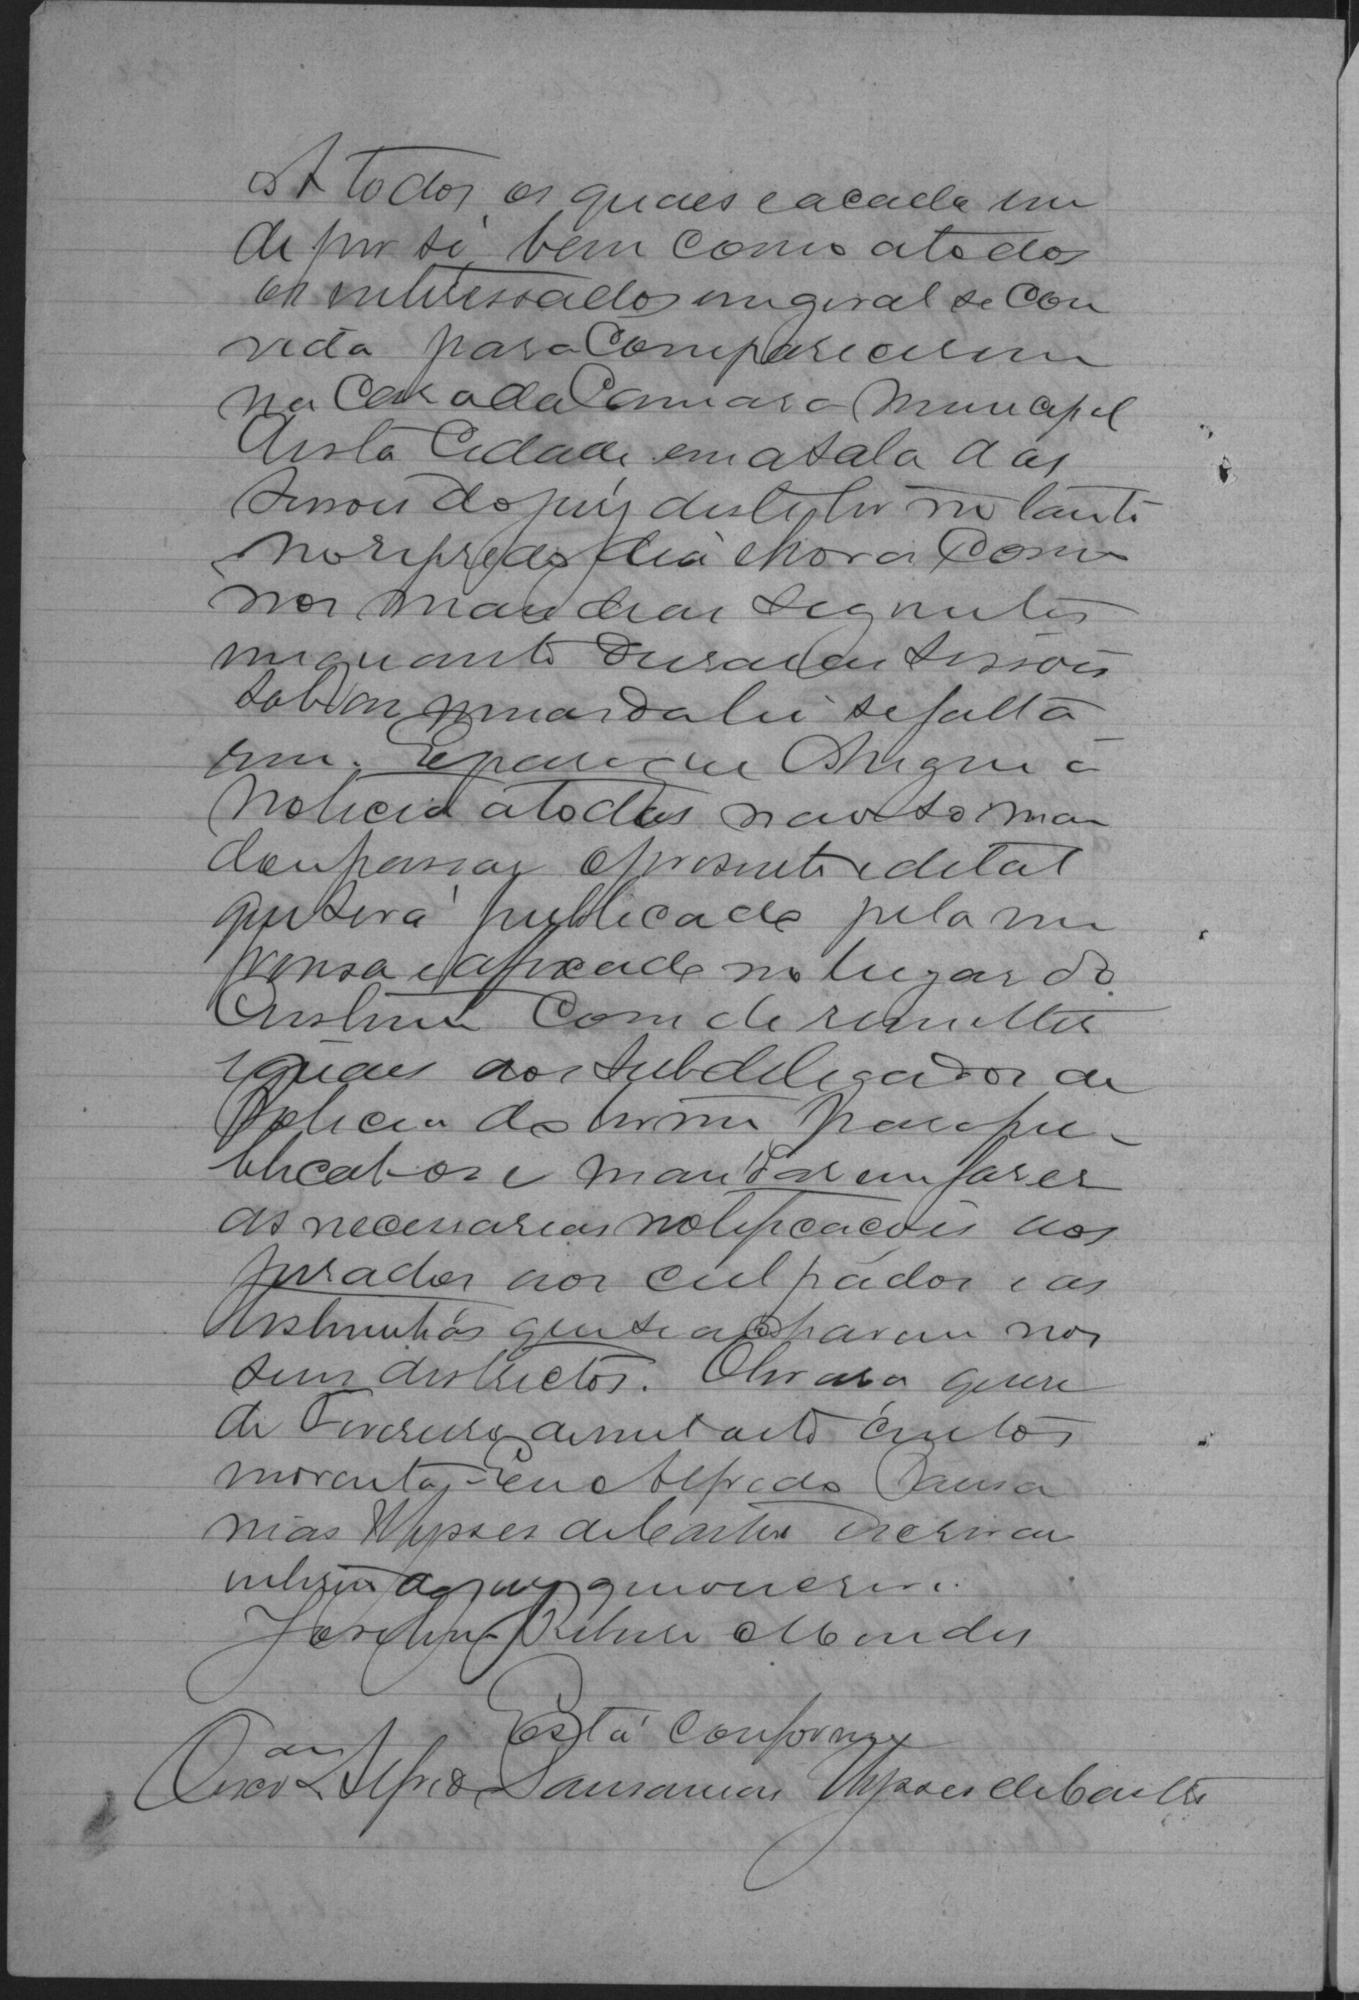 A todos os quaes e a cada um
de per si, bem como a todos
os interessados em geral se con
vida para comparecerem
na Casa da Camara Municipal
desta Cidade em a sala das
sessoes do jury deste tanto
no referido dia e hora como
nos mais dias seguintes
enquanto durarem as sessões
sob as penas da lei se falta
rem. E para que chegue á
noticia a todos mandou
passar o presente edital
que será publicado pela im
prensa e afixado no lugar do
costume com de remetter
iguaes aos subdelegados de
Policia do termo para pu-
blical-os e mandarem fazer
as necessarias notificacões aos
jurados aos culpados e as
testemunhas que se acharem nos
seus districtos. de
de Fevereiro de mil oito centos
noventa. Eu Alfredo Pausa
nias Ulysses de Castro escrivão
interino do jury que o escrevi.
Ribeiro Mendes
Está conforme
O Escrivão Alfredo Pausanias Ulysses de Castro